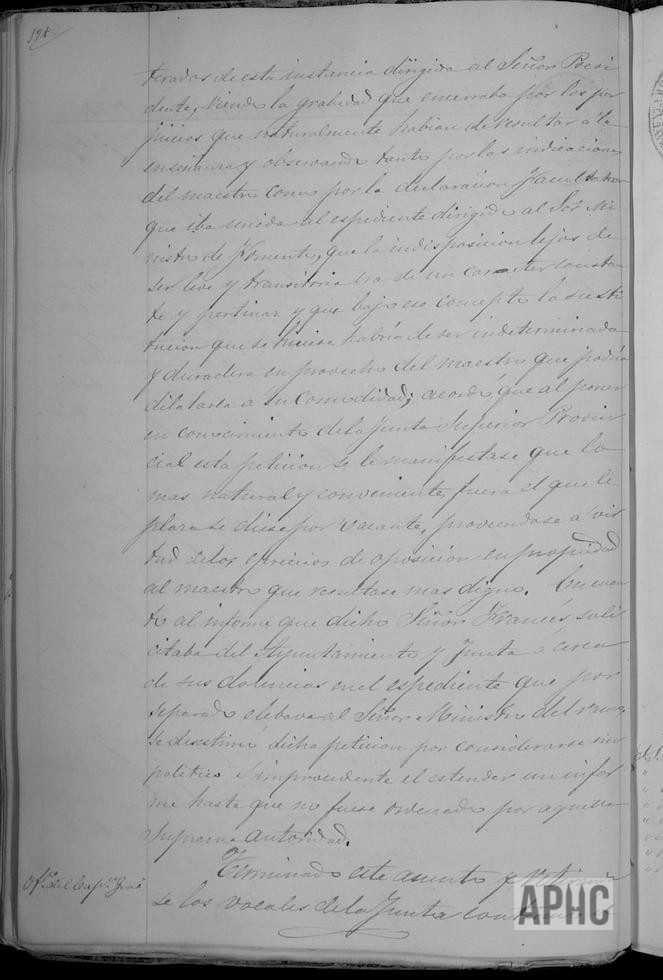 terados de esta instancia dirigida al Señor Presi
dente, viendo la grabedad que encerraba por los per
juicios que naturalmente habian de resultar á la
enseñanza y observando tanto por las indicaciones
del maestro como por la declaracion facultativa
que iba unida al espediente dirigido al Sor. Mi
nistro de Fomento, que la indisposicion lejos de
ser leve y transitoria era de un caracter constan
te y pertinaz y que bajo ese concepto la susti
tucion que se hiciese habria de ser indeterminada
y duradera en provecho del maestro que podria
dilatarla á su comodidad; acordó que al poner
en conocimiento de la Junta Superior Provin
cial esta peticion se le manifestase que lo
mas natural y conveniente fuera el que le
plaza se diese por vacante, proveiendose á vir
tud de los egercicios de oposicion en propiedad
al maestro que resultase mas digno. En cuan
to al informe que dicho Señor Francés soli
citaba del Ayuntamiento y Junta á cerca
de sus dolencias en el espediente que por
separado elebava al Señor Ministro del ramo,
se desestimó dicha peticion por considerarse im
politico é improcedente el estender un infor
me hasta que no fuese ordenado por aquella
Suprema autoridad.
Terminado este asunto y
se los vocales de la Junta
191
APHC